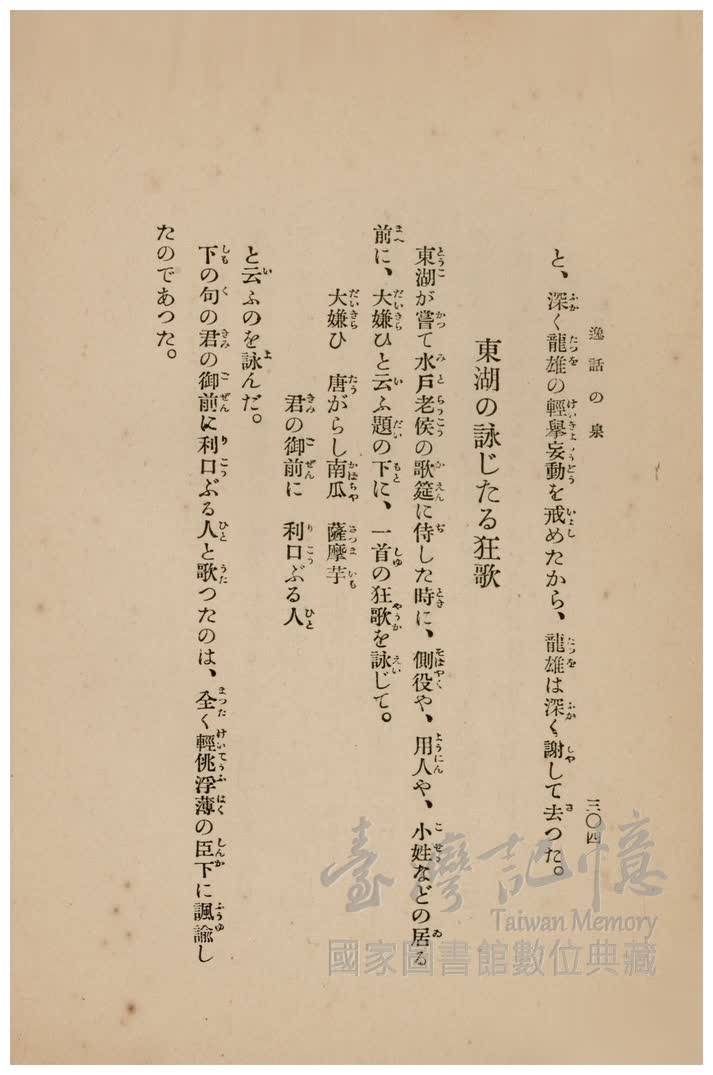 逸話の泉
三〇四
と、深く龍雄の輕擧妄動を戒めたから、龍雄は深く謝して去つた。
東湖の詠じたる狂歌
東湖が嘗て水戸老侯の歌筵に侍した時に、側役や、用人や、小姓などの居る
前に、大嫌ひと云ふ題の下に、一首の狂歌を詠じて。
大嫌ひ　唐がらし南瓜　薩摩芋
君の御前に　利口ぶる人
と云ふのを詠んだ。
下の句の君の御前に利口ぶる人と歌つたのは、全く輕佻浮薄の臣下に諷諭し
たのであつた。
臺灣記憶
Taiwan Memory
國家圖書館數位典藏